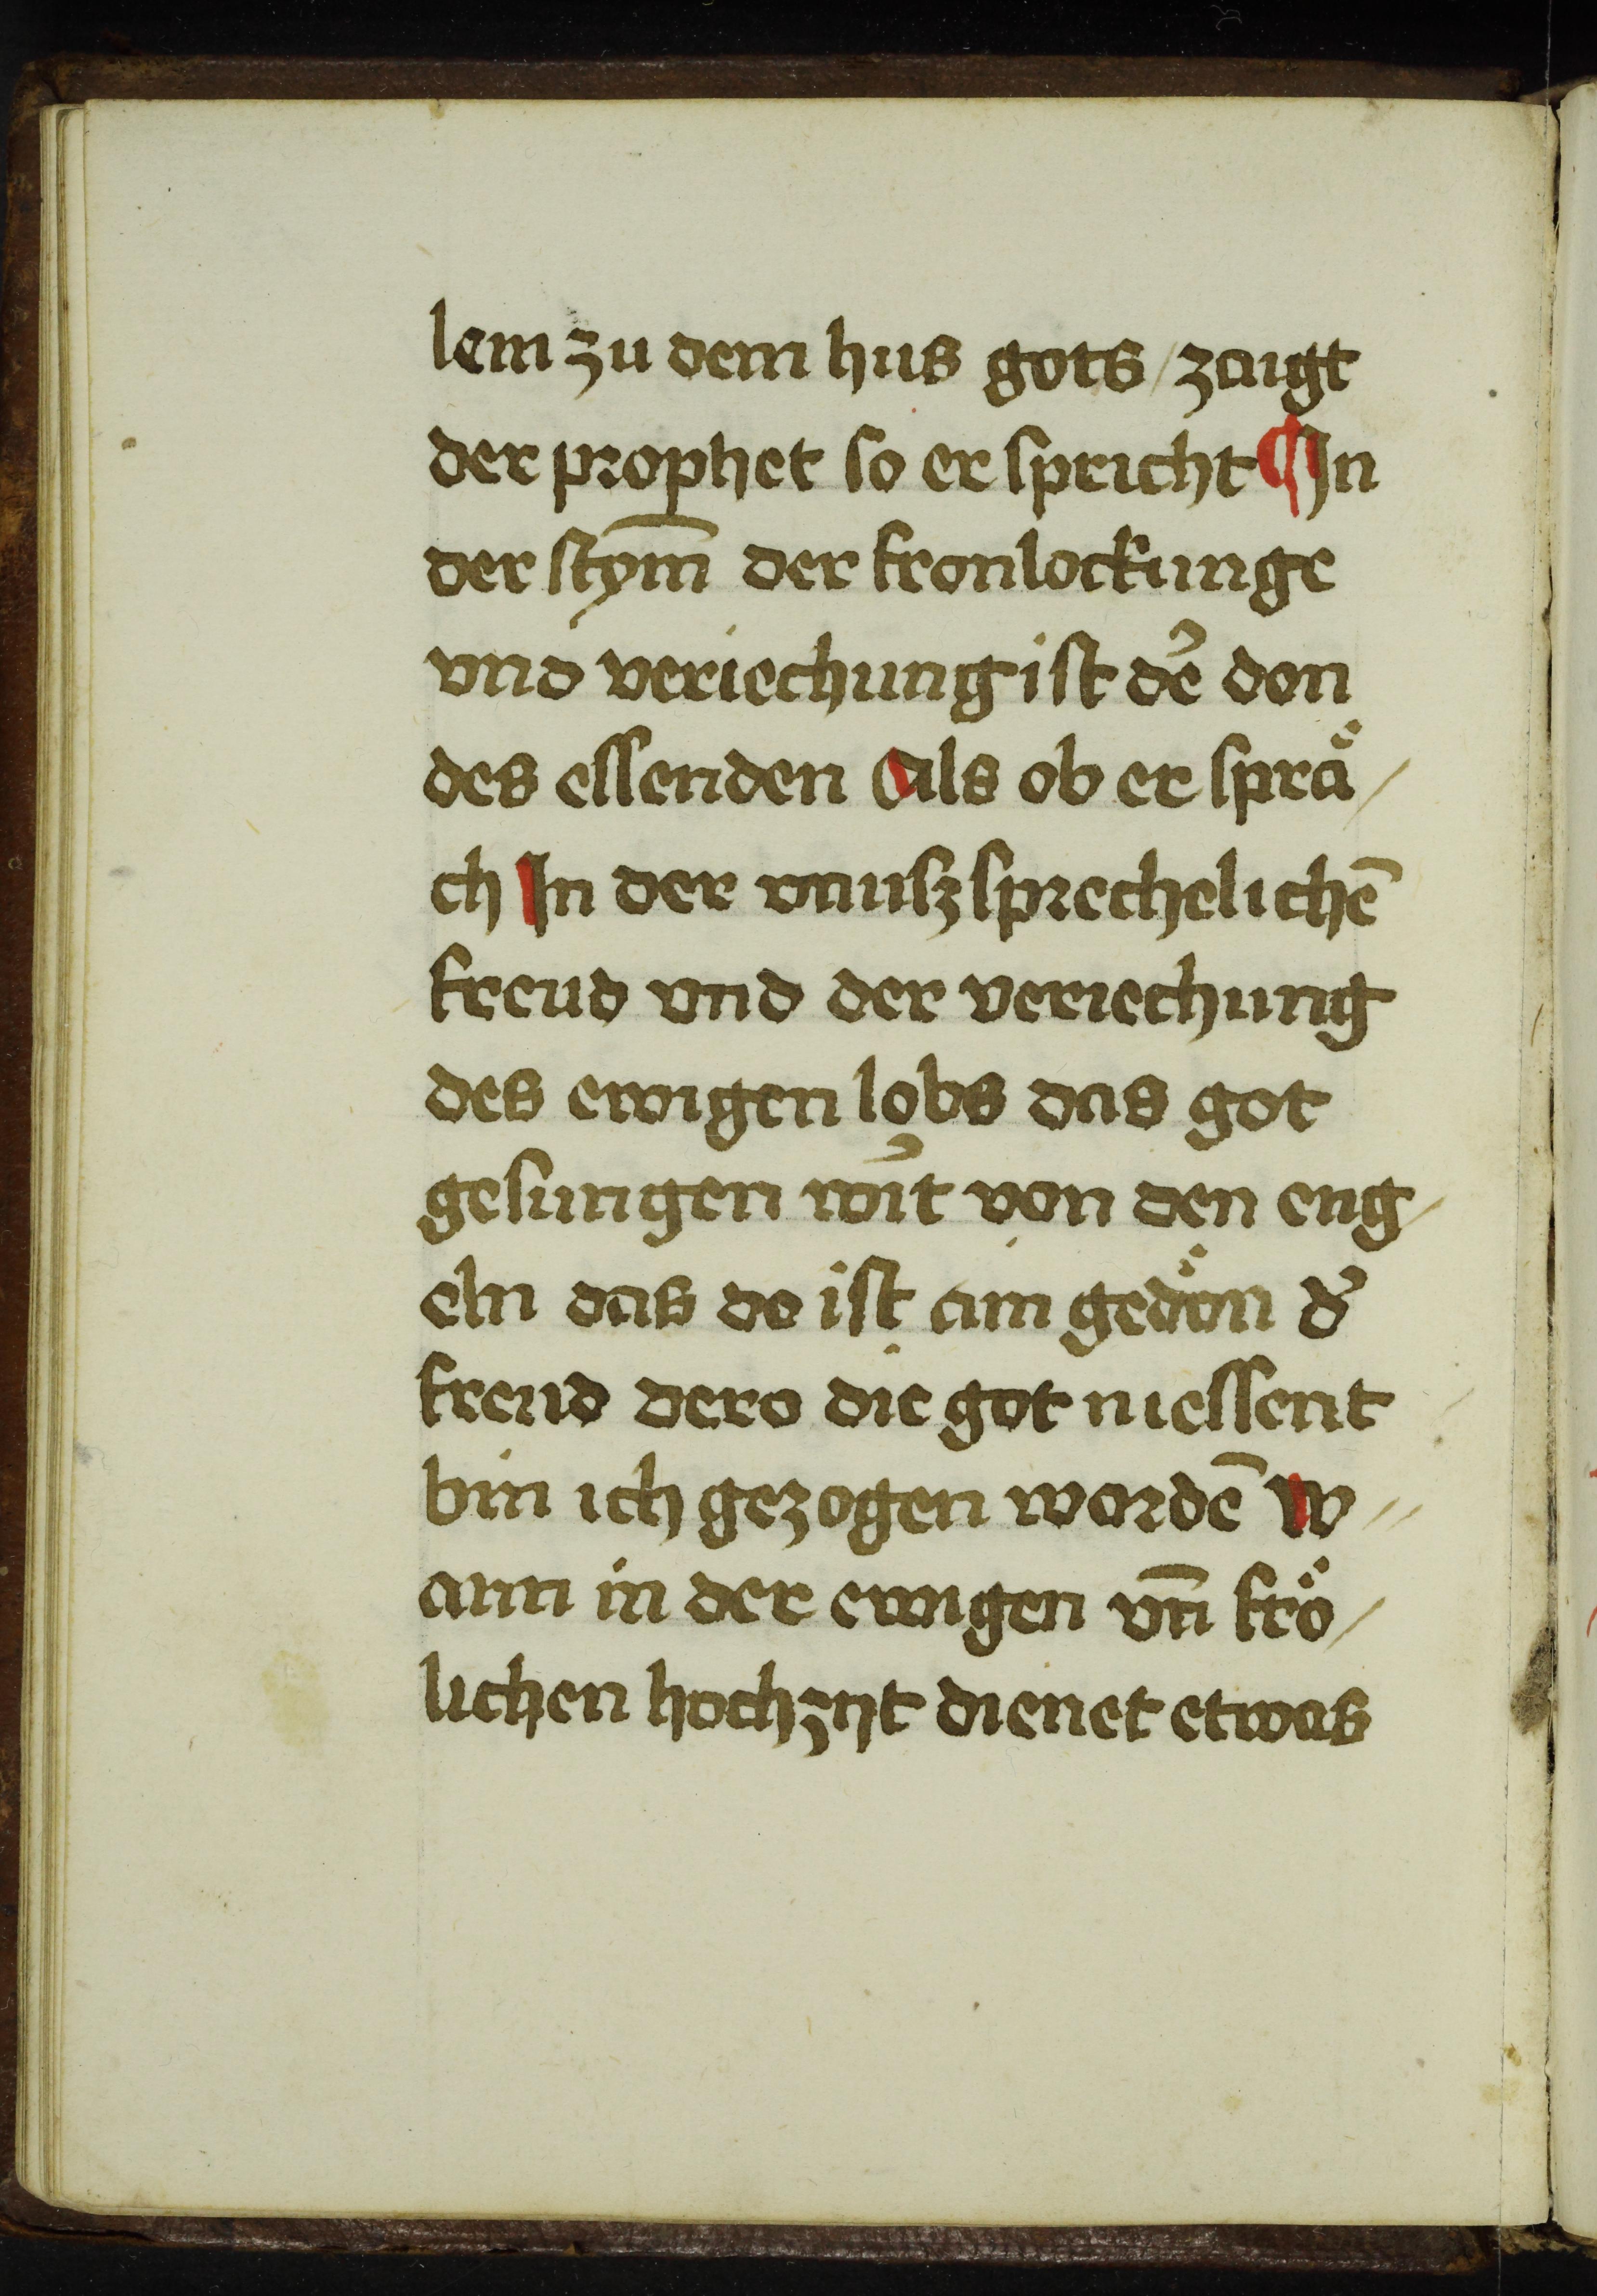 lem zu dem hus gots / zaigt
der prophet so er spricht ¶ In
der stym̄ der fronlockunge
vnd veriechung ist de᷑ don
des essenden Als ob er sprä /
ch In der vnuſzsprechelichē
freud vnd der veriechung
des ewigen lobs das got
gesungen wi᷑t von den eng /
eln das do ist ain gedön d᷑
freud dero die got niessent
bin ich gezogen wordē W //
ann in der ewigen vn̄ frö /
lichen hochzyt dienet etwas